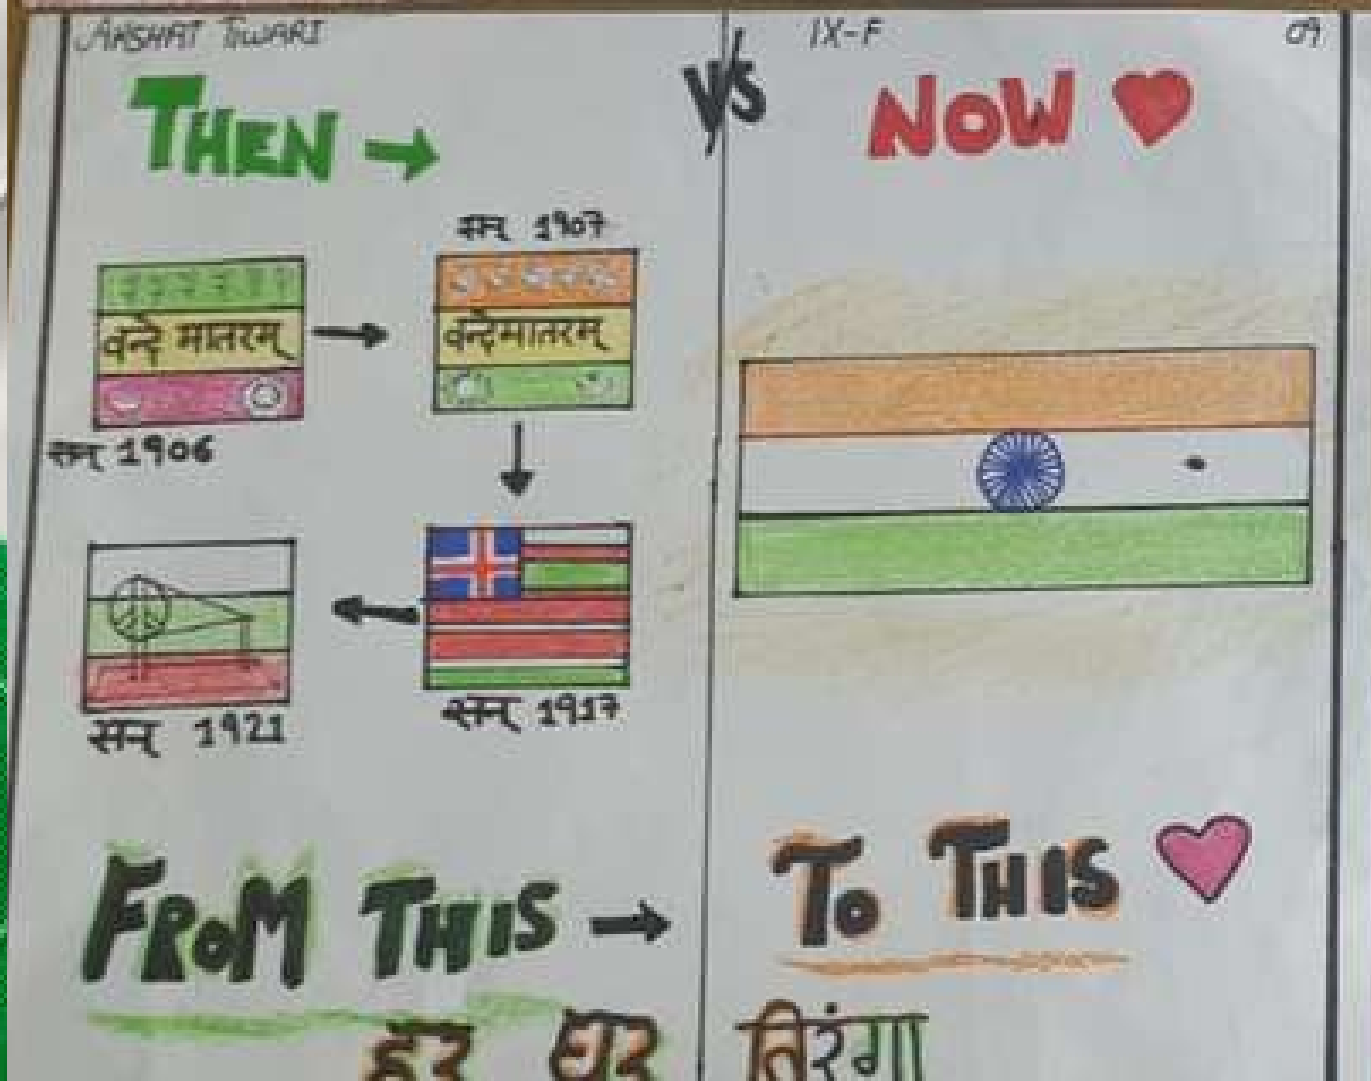 AKSHAT TIWARI
IX-F
09
THEN →
V/S
NOW
सन् 1907
वन्दे मातरम्
वन्देमातरम्
सन् 1906
सन् 1921
सन् 1917
FROM THIS →
TO THIS
हर घर तिरंगा